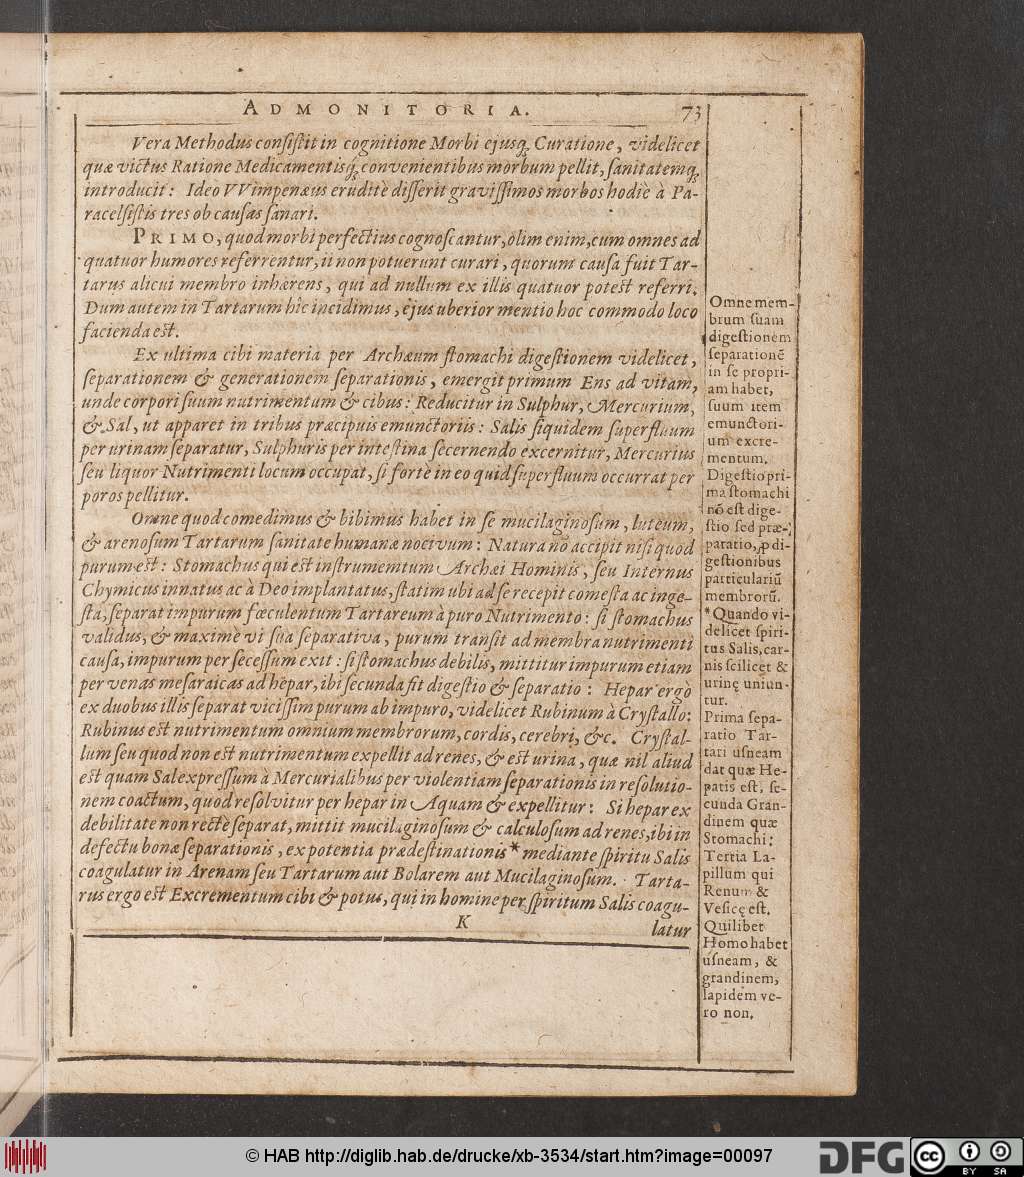 ADMONITORIA. 73
Vera Methodus consistit in cognitione Morbi ejusq́; Curatione, videlicet
quæ victus Ratione Medicamentisq́; convenientibus morbum pellit, sanitatemq́;
introducit: Ideo VVimpenæus eruditè disserit gravissimos morbos hodiè à Pa-
racelsistis tres ob causas sanari.
PRIMO, quod morbi perfectius cognoscantur, olim enim, cum omnes ad
quatuor humores referrentur, ii non potuerunt curari, quorum causa fuit Tar-
tarus alicui membro inhærens, qui ad nullum ex illis quatuor potest referri.
Dum autem in Tartarum hîc incidimus, ejus uberior mentio hoc commodo loco
facienda est.
Ex ultima cibi materia per Archæum stomachi digestionem videlicet,
separationem & generationem separationis, emergit primum Ens ad vitam,
unde corpori suum nutrimentum & cibus: Reducitur in Sulphur, Mercurium,
& Sal, ut apparet in tribus præcipuis emunctoriis: Salis siquidem superfluum
per urinam separatur, Sulphuris per intestina secernendo excernitur, Mercurius
seu liquor Nutrimenti locum occupat, si fortè in eo quid superfluum occurrat per
poros pellitur.
Omne quod comedimus & bibimus habet in se mucilaginosum, luteum,
& arenosum Tartarum sanitate humanæ nocivum: Natura nō accipit nisi quod
purum est: Stomachus qui est instrumemtum Archæi Hominis, seu Internus
Chymicus innatus ac à Deo implantatus, statim ubi ad se recepit comesta ac inge-
sta, separat impurum fœculentum Tartareum à puro Nutrimento: si stomachus
validus, & maximè vi sua separativa, purum transit ad membra nutrimenti
causa, impurum per secessum exit: si stomachus debilis, mittitur impurum etiam
per venas mesaraicas ad hepar, ibi secunda fit digestio & separatio: Hepar ergò
ex duobus illis separat vicissim purum ab impuro, videlicet Rubinum à Crystallo:
Rubinus est nutrimentum omnium membrorum, cordis, cerebri, &c. Crystal-
lum seu quod non est nutrimentum expellit ad renes, & est urina, quæ nil aliud
est quam Sal expressum à Mercurialibus per violentiam separationis in resolutio-
nem coactum, quod resolvitur per hepar in Aquam & expellitur: Si hepar ex
debilitate non rectè separat, mittit mucilaginosum & calculosum ad renes, ibi in
defectu bonæ separationis, ex potentia prædestinationis * mediante spiritu Salis
coagulatur in Arenam seu Tartarum aut Bolarem aut Mucilaginosum. Tarta-
rus ergo est Excrementum cibi & potus, qui in homine per spiritum Salis coagu-
K latur
Omne mem-
brum suam
digestionem
separationē
in se propri-
am habet,
suum item
emunctori-
um excre-
mentum.
Digestio pri-
ma stomachi
nō est dige-
stio sed præ-
paratio, ꝓ di-
gestionibus
particulariū
membrorū.
* Quando vi-
delicet spiri-
tus Salis, car-
nis scilicet &
urinę uniun-
tur.
Prima sepa-
ratio Tar-
tari usneam
dat quæ He-
patis est, se-
cunda Gran-
dinem quæ
Stomachi:
Tertia La-
pillum qui
Renum &
Vesicę est.
Quilibet
Homo habet
usneam, &
grandinem,
lapidem ve-
ro non.
© HAB http://diglib.hab.de/drucke/xb-3534/start.htm?image=00097
DFG
cc BY SA